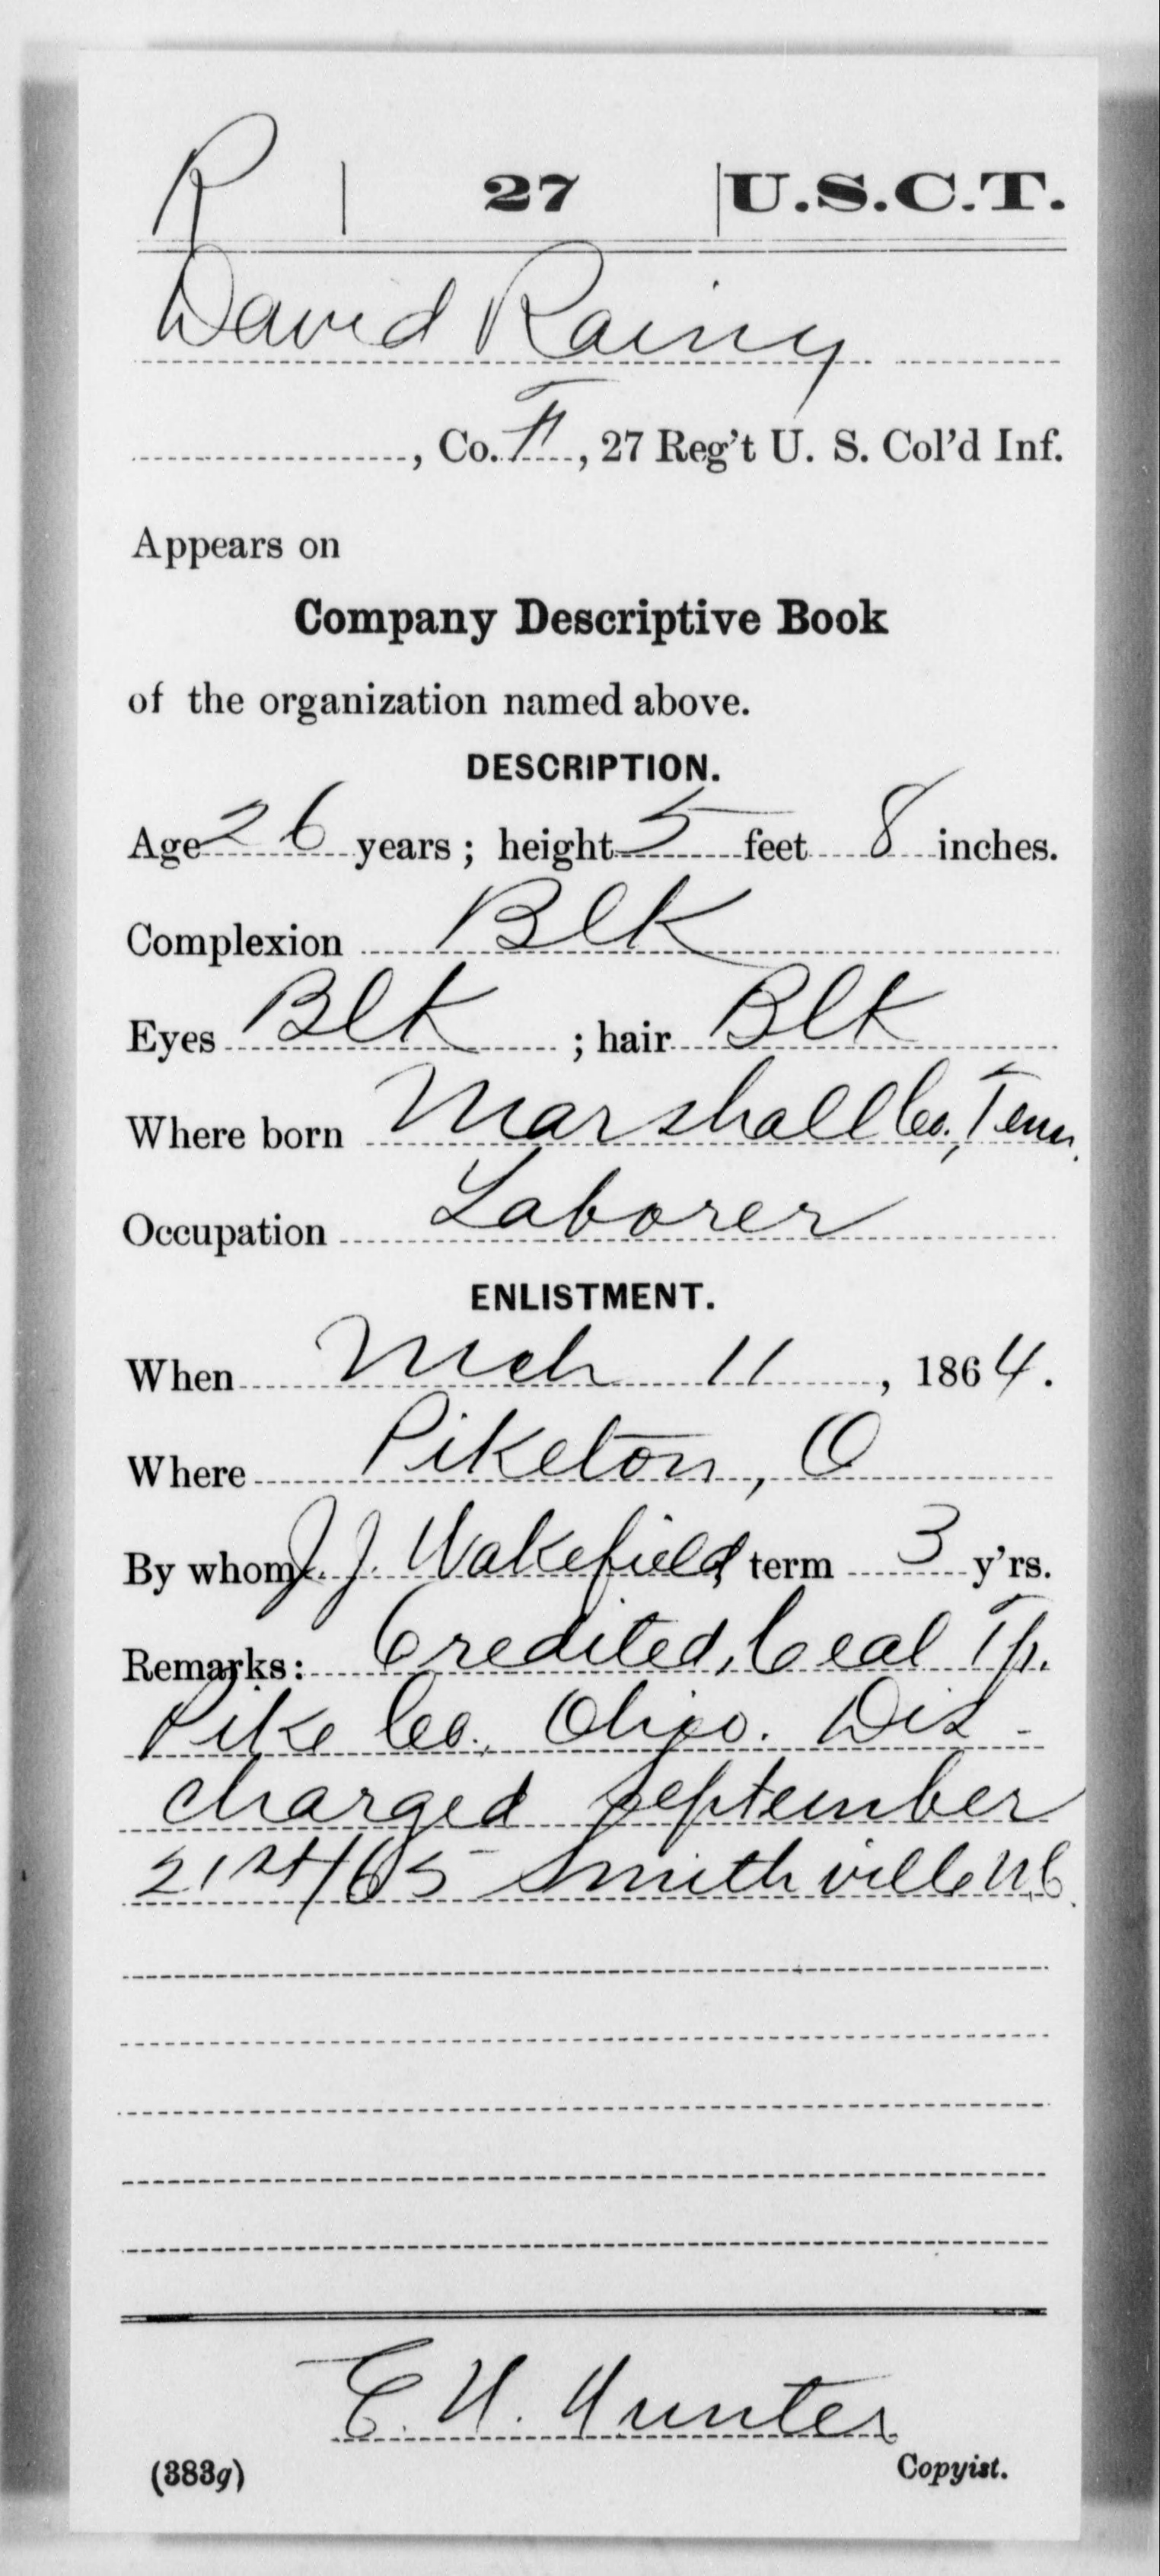 R | 27 | U.S.C.T.
David Rainy
, Co. F, 27 Reg't U. S. Col'd Inf.
Appears on
Company Descriptive Book
of the organization named above.
DESCRIPTION.
Age 26 years; height 5 feet 8 inches.
Complexion Blk
Eyes Blk ; hair Blk
Where born Marshall Co., Tenn.
Occupation Laborer
ENLISTMENT.
When Mch 11, 1864.
Where Piketon, O
By whom J. J. Wakefield, term 3 y'rs.
Remarks: Credited, Ceal Tp.
Pike Co. Ohio. Dis-
charged September
21st/65 Smithville N.C.
E. H. Hunter
(383g) Copyist.